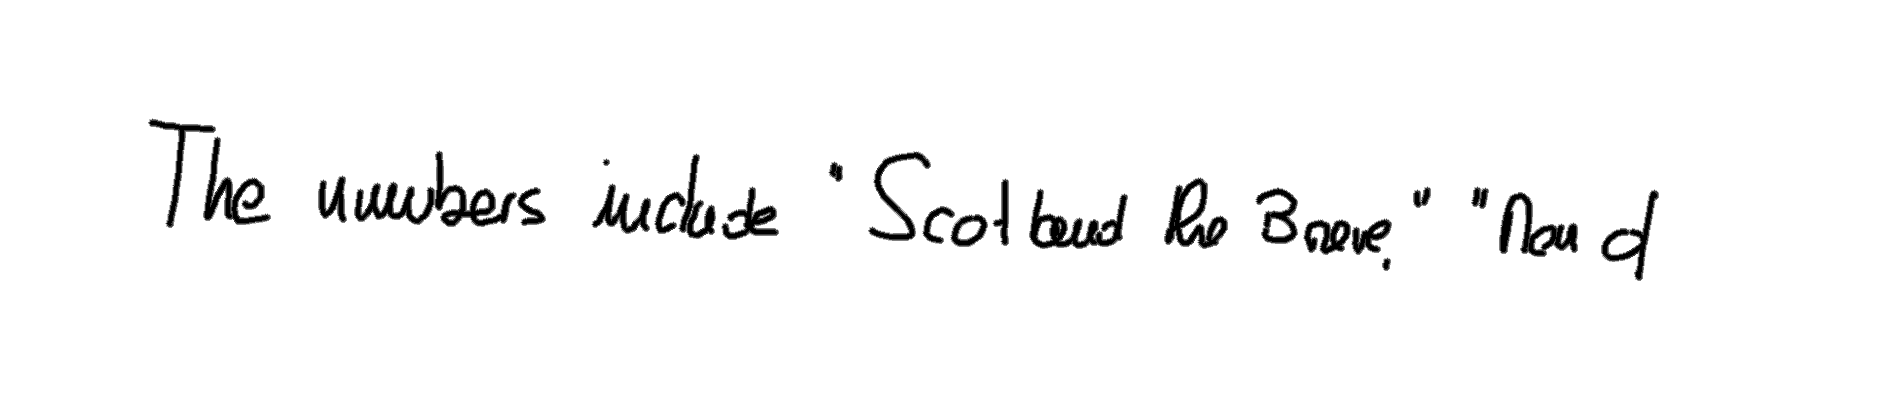 The numbers include "Scotland the Brave." "